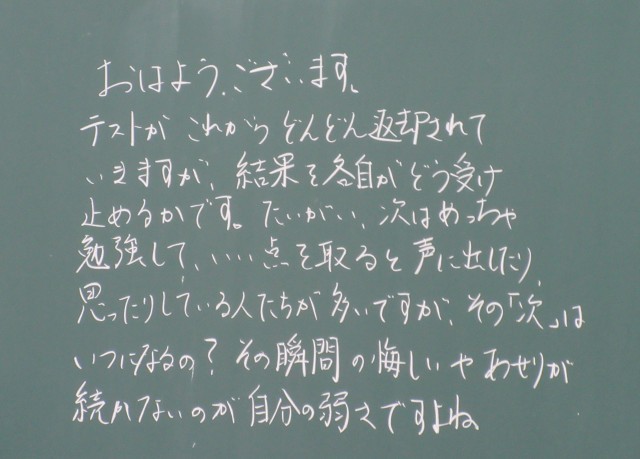 おはようございます。
テストがこれからどんどん返却されて
いきますが、結果を各自がどう受け
止めるかです。たいがい、次はめっちゃ
勉強して、いい点を取ると声に出したり
思ったりしている人たちが多いですが、その「次」は
いつになるの？その瞬間の悔しいやあせりが
続かないのが自分の弱さですよね